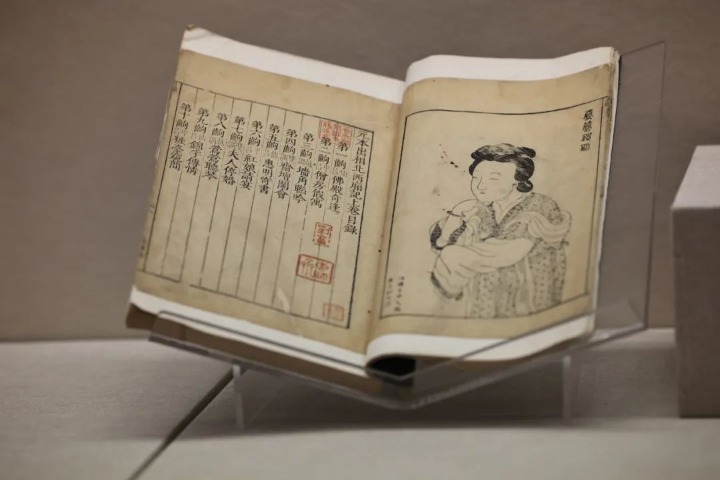 元本出相北西廂記上卷目錄
第一齣 佛殿奇逢
第二齣 僧房假寓
第三齣 墻角聯吟
第四齣 齋壇鬧會
第五齣 惠明寄書
第六齣 紅娘請宴
第七齣 夫人停婚
第八齣 鶯鶯聽琴
第九齣 錦字傳情
第十齣 粧臺窺簡
鶯鶯